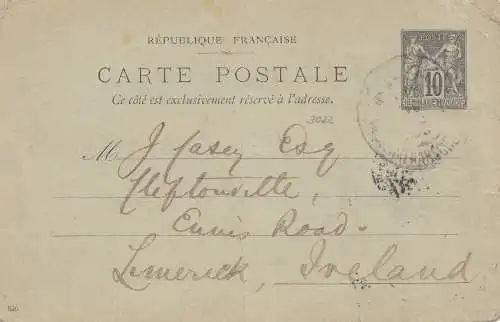 RÉPUBLIQUE FRANÇAISE
CARTE POSTALE
Ce côté est exclusivement réservé à l'adresse.
3022
M J Casey Esq
Cleftonville,
Ennis Road.
Limerick, Ireland
10